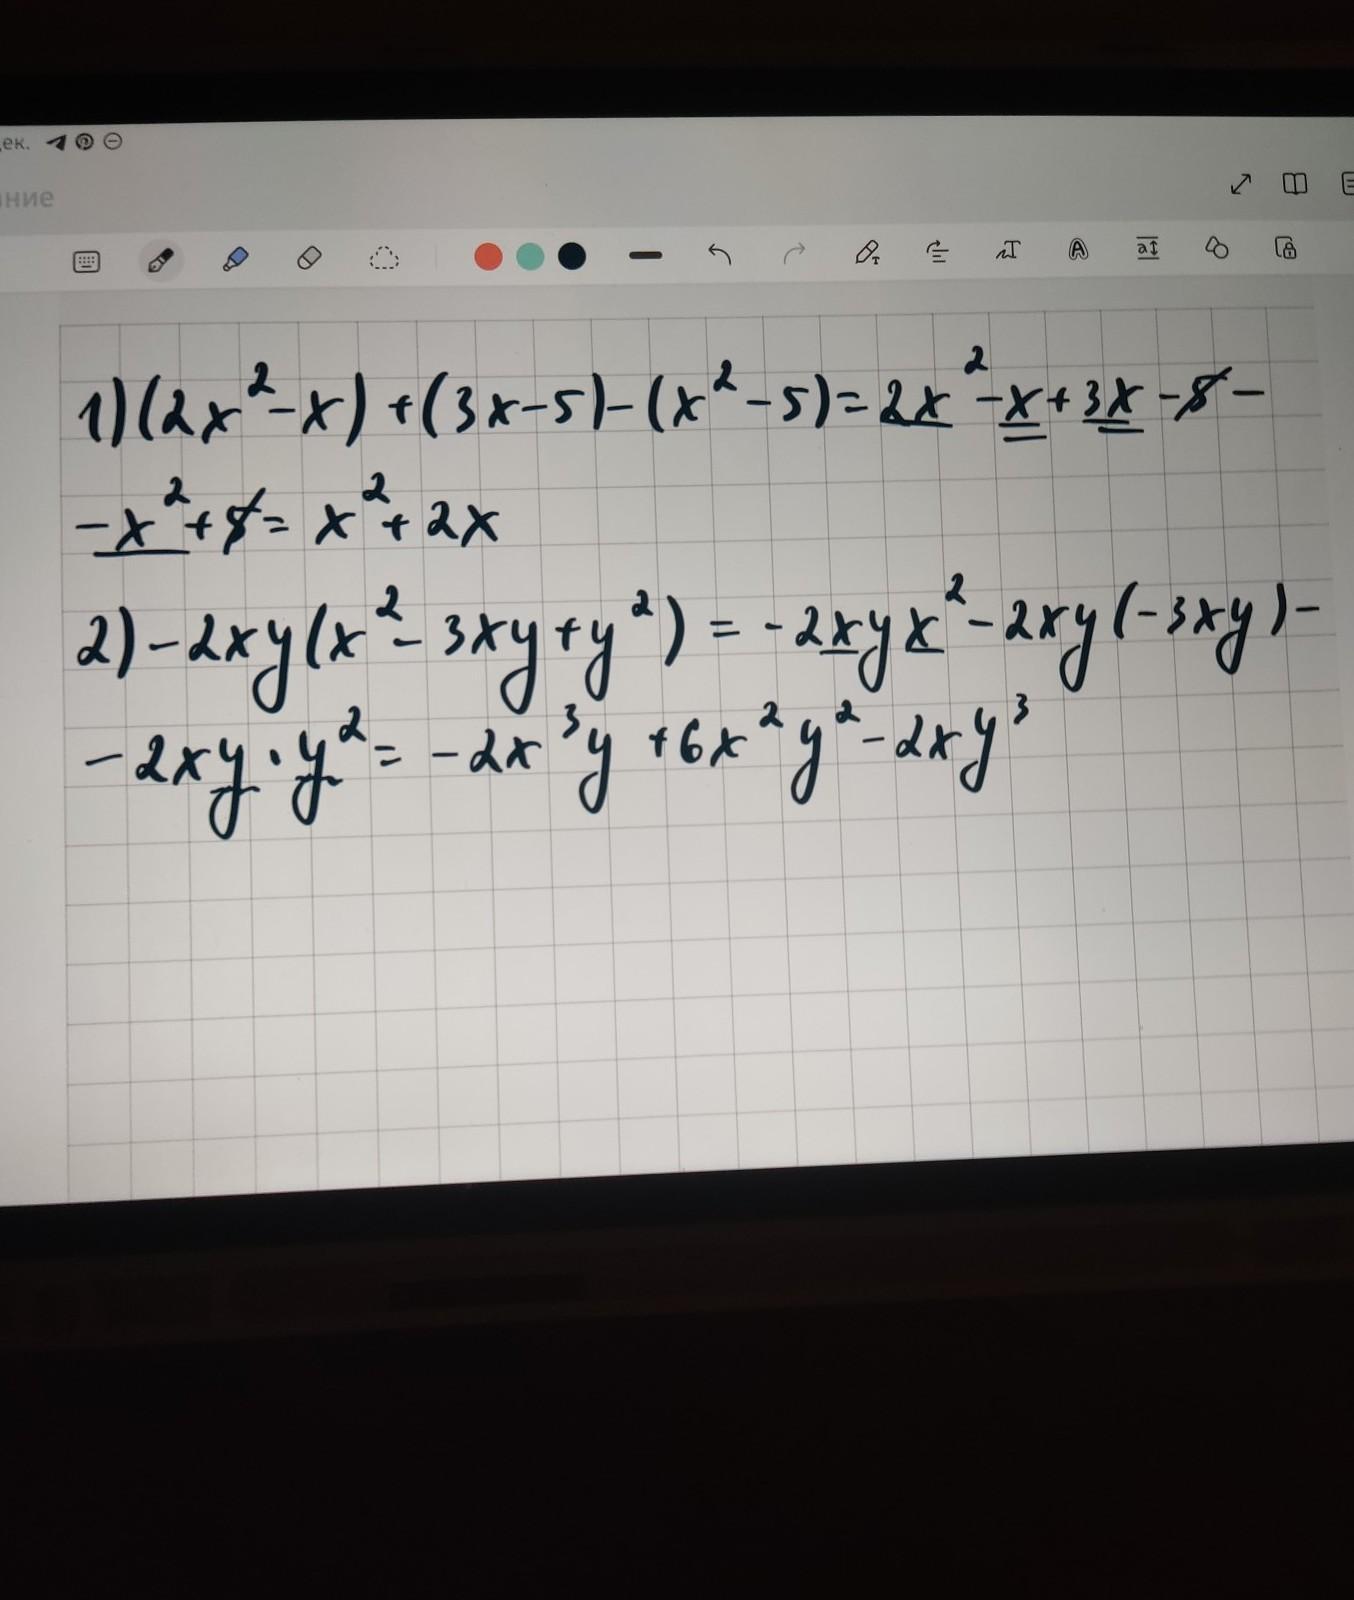 ек.
ние
1) (2x² - x) + (3x - 5) - (x² - 5) = 2x² - x + 3x - 5 -
- x² + 5 = x² + 2x
2) - 2xy(x² - 3xy + y²) = - 2xyx² - 2xy(-3xy) -
- 2xy · y² = - 2x³y + 6x²y² - 2xy³